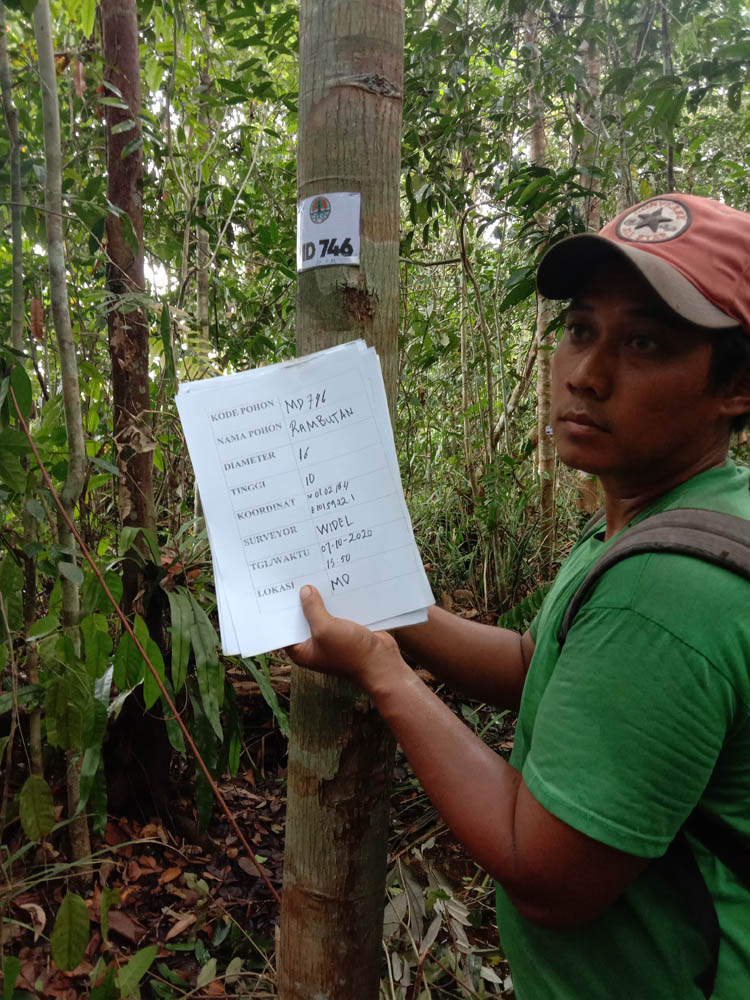 ID 746
KODE POHON MD 746
NAMA POHON RAMBUTAN
DIAMETER 16
TINGGI 10
KOORDINAT N 01 02 184
E 10159221
SURVEYOR WIDEL
TGL/WAKTU 07-10-2020
13:50
LOKASI MD